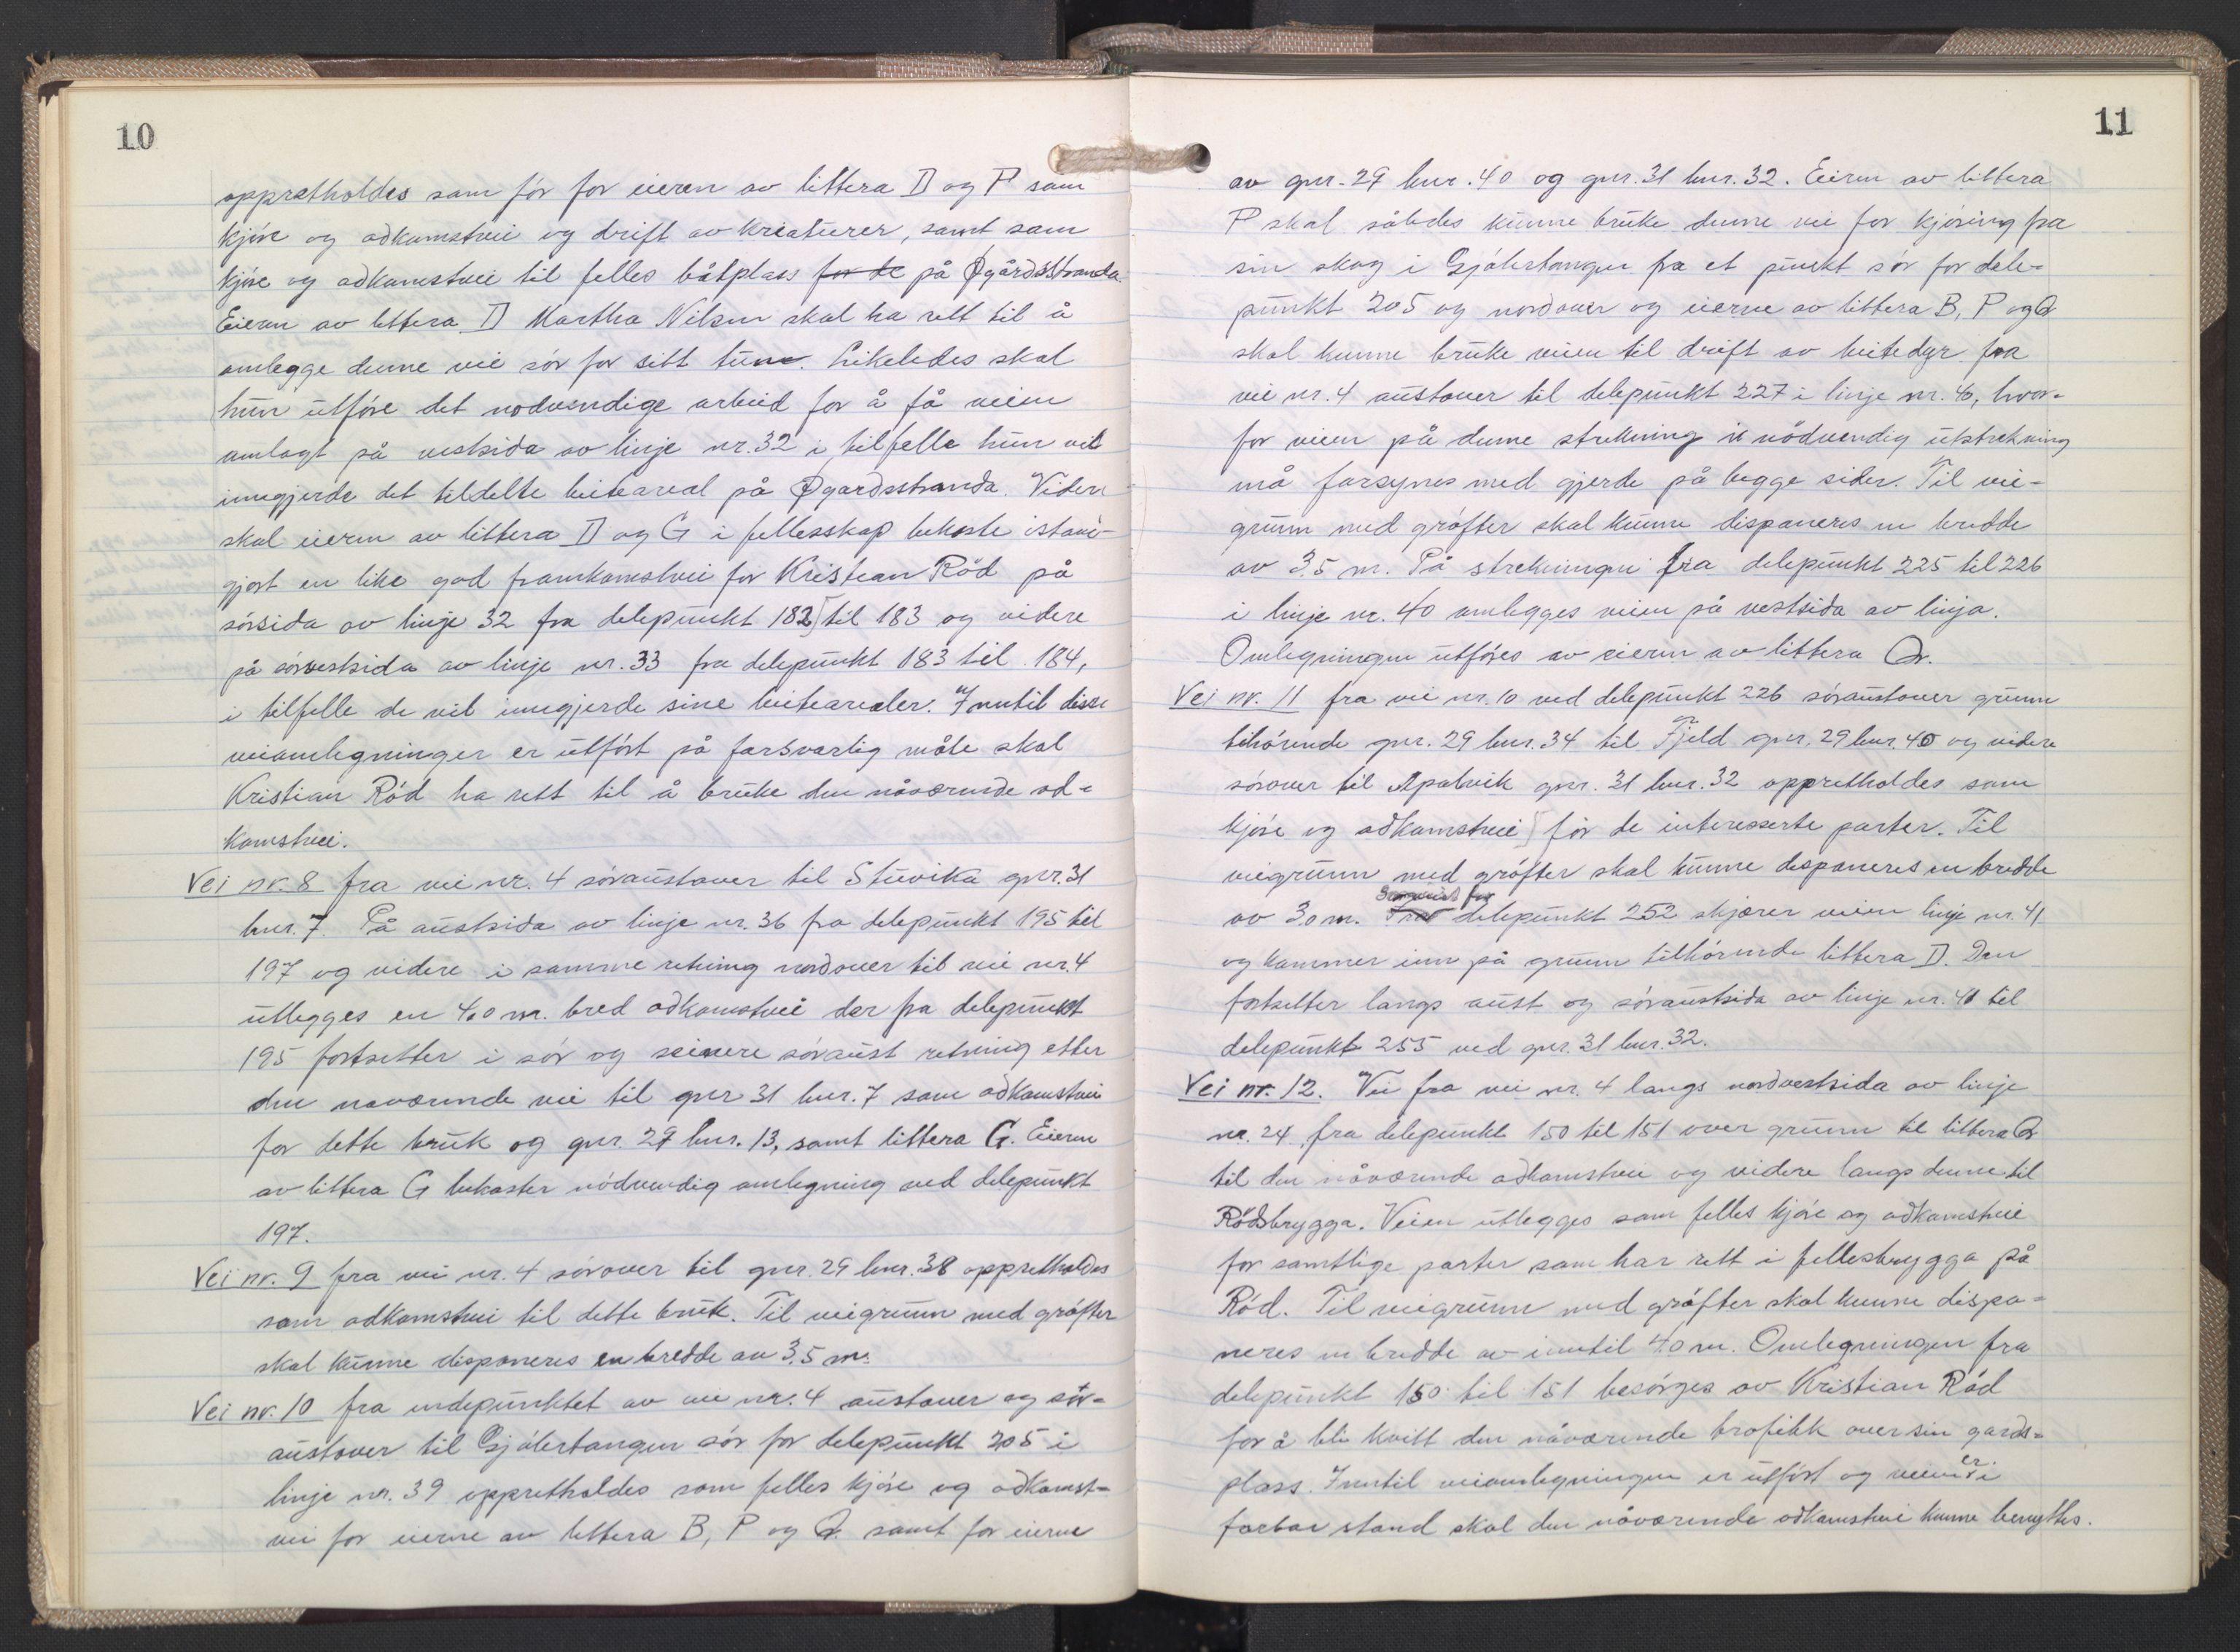 10
opprettholdes som för for eieren av littera D og P som
kjöre og adkomstvei og drift av kreaturer, samt som
kjöre og adkomstvei til felles båtplass for de på Øgårdsstranda.
Eieren av littera D Martha Nilsen skal ha rett til å
omlegge denne vei sör for sitt tun. Likeledes skal
hun utföre det nodvendige arbeid for å få veien
omlagt på vestsida av linje nr. 32 i tilfelle hun vil
inngjerde det tildelte beiteareal på Øgardsstranda. Videre
skal eieren av littera D og G i fellesskap bekoste istand-
gjort en like god framkomstvei for Kristian Röd på
sörsida av linje 32 fra delepunkt 182 til 183 og videre
på sörvestsida av linje nr. 33 fra delepunkt 183 til 184,
i tilfelle de vil inngjerde sine beitearealer. Inntil disse
veiomlegninger er utfört på forsvarlig måte skal
Kristian Röd ha rett til å bruke den nåværende ad-
komstvei.
Vei nr. 8 fra vei nr. 4 söraustover til Stuvika gnr. 31
bnr. 7. På austsida av linje nr. 36 fra delepunkt 195 til
197 og videre i samme retning nordover til vei nr. 4
utlegges en 4,0 m. bred adkomstvei der fra delepunkt
195 fortsetter i sör og seinere söraust retning etter
den naværende vei til gnr 31 bnr. 7 som adkomstvei
for dette bruk og gnr. 29 bnr. 13, samt littera G. Eieren
av littera G bekoster nödvendig omlegning ved delepunkt
197.
Vei nr. 9 fra vei nr. 4 sörover til gnr. 29 bnr. 38 opprettholdes
som adkomstvei til dette bruk. Til veigrunn med gröfter
skal kunne disponeres en bredde av 3,5 m.
Vei nr. 10 fra endepunktet av vei nr. 4 austover og sör-
austover til Gjölertangen sör for delepunkt 205 i
linje nr. 39 opprettholdes som felles kjöre og adkomst-
vei for eierne av littera B, P og Q samt for eierne
11
av gnr. 29 bnr. 40 og gnr. 31 bnr. 32. Eieren av littera
P skal således kunne bruke denne vei for kjöring fra
sin skog i Gjölertangen fra et punkt sör for dele-
punkt 205 og nordover og eierne av littera B, P og Q
skal kunne bruke veien til drift av beitedyr fra
vei nr. 4 austover til delepunkt 227 i linje nr. 40, hvor-
for veien på denne strekning i nödvendig utstrekning
må forsynes med gjerde på begge sider. Til vei-
grunn med gröfter skal kunne disponeres en bredde
av 3,5 m. På strekningen fra delepunkt 225 til 226
i linje nr. 40 omlegges veien på vestsida av linja.
Omlegningen utföres av eieren av littera Q.
Vei nr. 11 fra vei nr. 10 ved delepunkt 226 söraustover grunn
tilhörende gnr. 29 bnr. 34 til Fjeld gnr. 29 bnr. 40 og videre
sörover til Apalvik gnr. 31 bnr. 32 opprettholdes som
kjöre og adkomstvei för de interesserte parter. Til
veigrunn med gröfter skal kunne disponeres en bredde
av 3,0 m. Fra delepunkt 252 skjærer veien linje nr. 41
og kommer inn på grunn tilhörende littera D. Den
fortsetter langs aust og söraustsida av linje nr. 41 til
delepunkt 255 ved gnr. 31 bnr. 32.
Vei nr. 12. Vei fra vei nr. 4 langs nordvestsida av linje
nr. 24, fra delepunkt 150 til 151 over grunn til littera Q
til den nåværende adkomstvei og videre langs denne til
Rödsbrygga. Veien utlegges som felles kjöre og adkomstvei
for samtlige parter som har rett i fellesbrygga på
Röd. Til veigrunn med gröfter skal kunne dispo-
neres en bredde av inntil 4,0 m. Omlegningen fra
delepunkt 150 til 151 besörges av Kristian Röd
for å bli kvitt den nåværende trafikk over sin gards-
plass. Inntil veiomlegningen er utfört og veien er i
farbar stand skal den nåværende adkomstvei kunne benyttes.